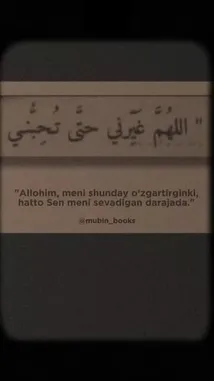 " اللهُمَّ غَيِّرني حتَّى تُحِبُّني "
"Allohim, meni shunday o'zgartirginki,
hatto Sen meni sevadigan darajada."
@mubin_books